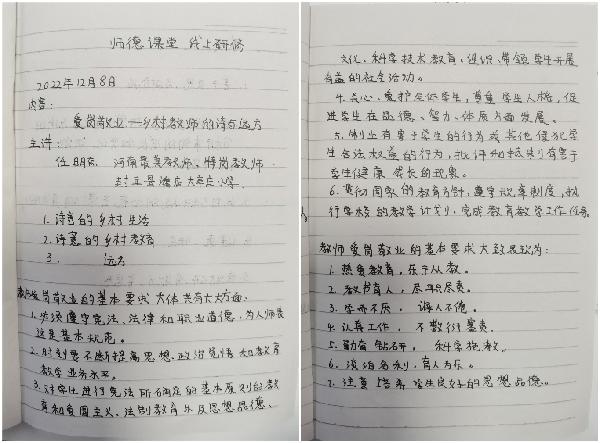 师德课堂 线上研修
2022年12月8日
内容:
爱岗敬业——乡村教师的诗与远方
主讲
任明杰 河南最美教师、特岗教师
封丘县潘店大辛庄小学
1. 诗意的乡村生活
2. 诗意的乡村教育
3. 远方
教师爱岗敬业的基本要求大体共有六大方面:
1. 必须遵守宪法、法律和职业道德,为人师表
这是基本规范。
2. 时刻要不断提高思想、政治觉悟和教育
教学业务水平。
3. 对学生进行宪法所确定的基本原则的教
育和爱国主义、法制教育以及思想品德、
文化、科学技术教育,组织、带领学生开展
有益的社会活动。
4. 关心、爱护全体学生,尊重学生人格,促
进学生在品德、智力、体质方面发展。
5. 制止有害于学生的行为或其他侵犯学
生合法权益的行为,批评和抵制有害于
学生健康成长的现象。
6. 贯彻国家的教育方针,遵守规章制度,执
行学校的教学计划,完成教育教学工作任务。
教师爱岗敬业的基本要求大致表现为:
1. 热爱教育,乐于从教。
2. 教书育人,尽职尽责。
3. 学而不厌,诲人不倦。
4. 认真工作,不敷衍塞责。
5. 勤奋钻研,科学施教。
6. 淡泊名利,育人为乐。
7. 注重培养学生良好的思想品德。